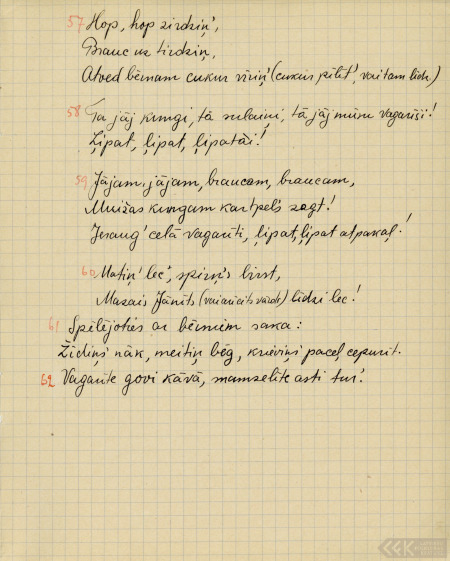 57 Hop, hop zirdziņ',
Brauc uz tirdziņ,
Atved bērnam cukur vīriņ' (cukur pīlīt', vai tam līdz.)
58 Tā jāj kungi, tā sulaiņi, tā jāj mūsu vagarīši!
Ļipat, ļipat, ļipatāi!
59 Jājam, jājam, braucam, braucam,
Muižas kungam kartpeļs zagt!
Ieraug' ceļā vagarīti, ļipat, ļipat atpakaļ!
60 Matiņ' lec', spirņ's birst,
Mazais Jānīts (vai vārds) līdzi lec!
61 Spēlējoties ar bērniem saka:
Židiņš nāk, meitiņ bēg, krieviņš paceļ cepurīt.
62 Vagarīte govi kāvā, mamzelīte asti tur!